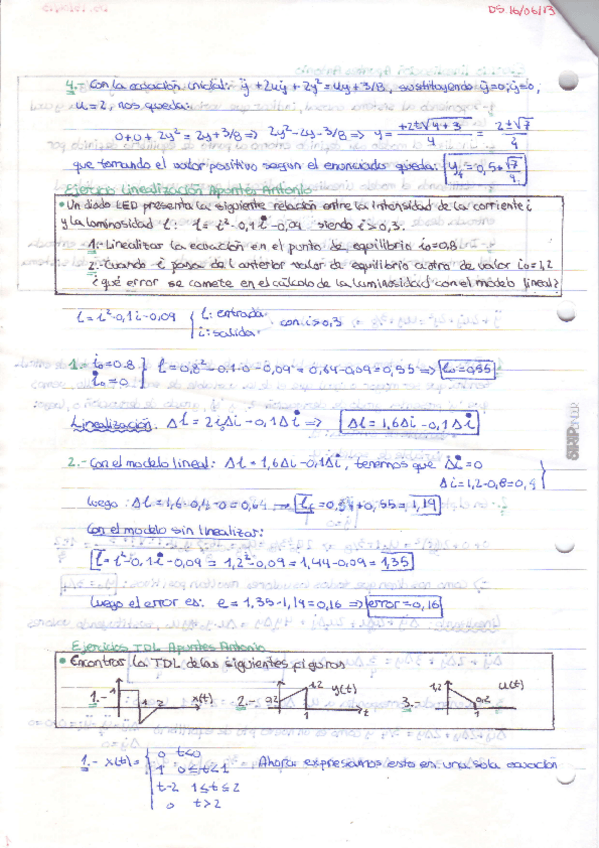 DS 16/06/13
4.- Con la ecuación inicial: ÿ + 2uẏ + 2y² = uy + 3/8, sustituyendo ÿ=0; ẏ=0,
u=2, nos queda:
0+0+2y² = 2y+3/8 => 2y²-2y-3/8 => y = +2±√4+3 / 4 = 2±√7 / 4
que tomando el valor positivo segun el enunciado queda: y = 0,5+√7/4
Ejercicio Linealización Apuntes Antonio
• Un diodo LED presenta la siguiente relación entre la intensidad de la corriente i
y la luminosidad l: l = i²-0,1 i̇ -0,09 siendo i>0,3.
1.- Linealizar la ecuación en el punto de equilibrio i₀=0,8
2.- Cuando i pasa del anterior valor de equilibrio a otro de valor i₀=1,2
¿qué error se comete en el cálculo de la luminosidad con el modelo lineal?
l = i²-0,1i-0,09 { l: entrada. i: salida. con i>0,3
1.- i₀=0.8
i̇₀=0 } l = 0,8²-0.1·0-0,09 = 0,64-0,09 = 0,55 => l₀=0,55
Linealización. Δl = 2iΔi - 0,1Δi̇ => Δl = 1,6Δi - 0,1Δi̇
2.- Con el modelo lineal: Δl = 1,6Δi - 0,1Δi̇, tenemos que Δi̇ = 0
Δi = 1,2-0,8 = 0,4
luego: Δl = 1,6·0,4-0 = 0,64 → +0,55 = 1,19
Con el modelo sin linealizar:
l = i²-0,1i̇-0,09 = 1,2²-0,09 = 1,44-0,09 = 1,35
luego el error es: e = 1,35-1,19 = 0,16 => error = 0,16
Ejercicios TDL Apuntes Antonio
• Encontrar la TDL de las siguientes figuras
1.- 1 1 2 x(t) 2.- 0,2 1,2 y(t) 1 t 3.- 1,2 0,2 1 u(t)
1.- x(t) = { 0 t<0
1 0≤t<1 Ahora expresamos esto en una sola ecuación
t-2 1≤t≤2
0 t>2